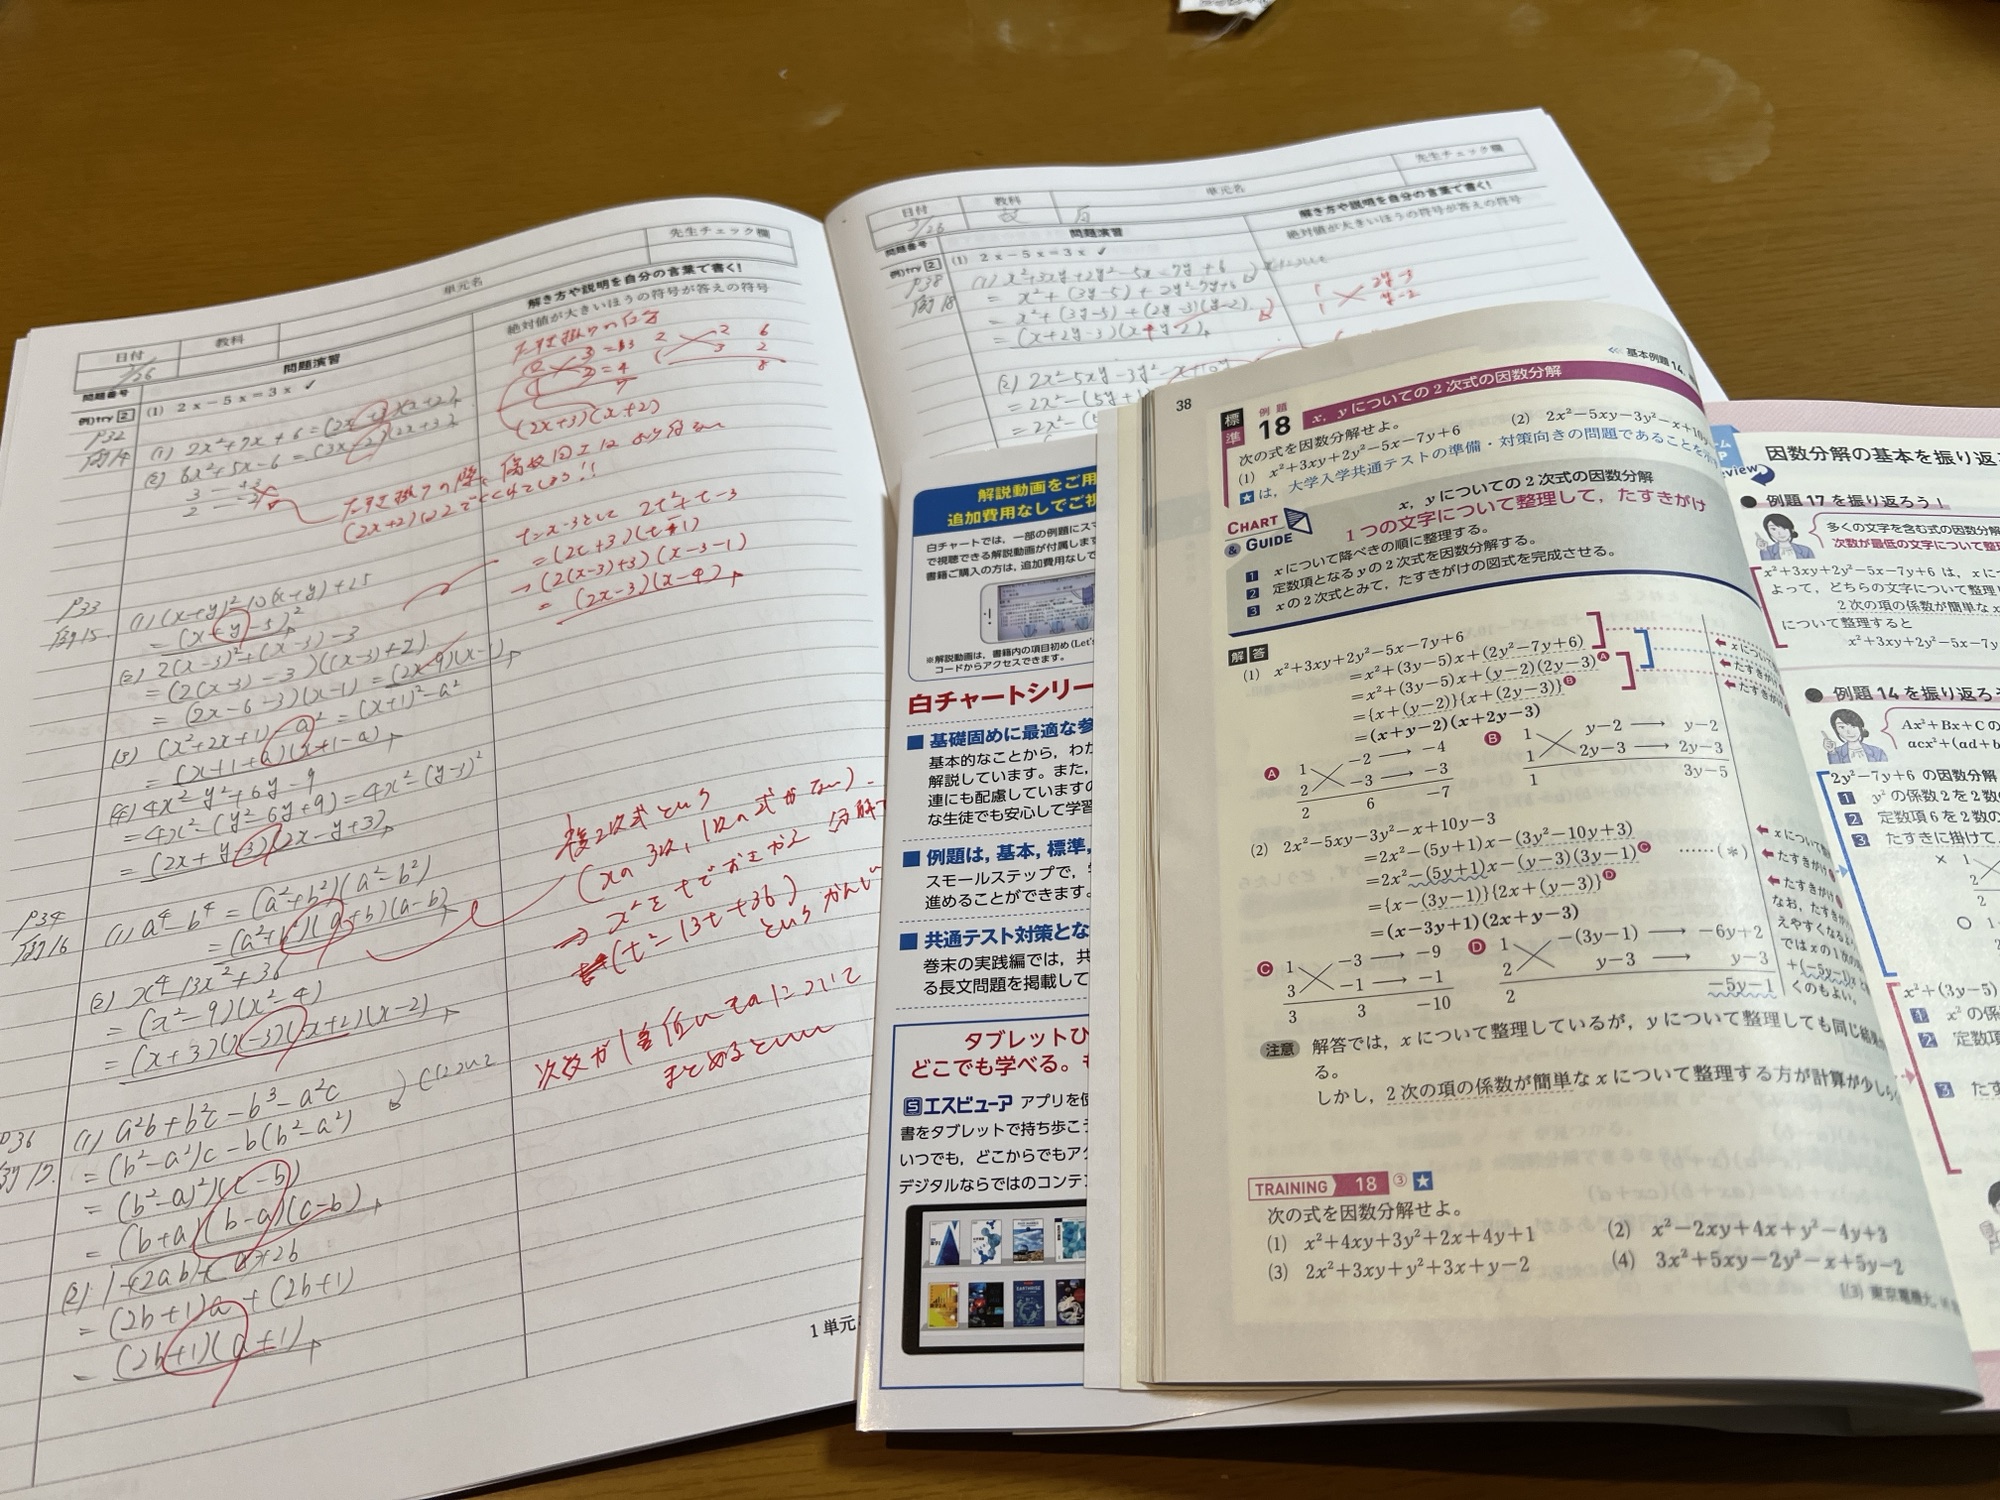 日付
教科
単元名
先生チェック欄
問題番号
問題演習
解き方や説明を自分の言葉で書く!
例)try 2
(1) 2x-5x=3x ✓
絶対値が大きいほうの符号が答えの符号
P32
例14
(1) 2x²+7x+6=(2x+3)(x+2)
(2) 6x²+5x-6=(3x-2)(2x+3)
(2x+3)(x+2)
P33
例15
(1) (x+y)²-10(x+y)+25
=(x+y-5)²
(2) 2(x-3)²+(x-3)-3
=(2(x-3)-3)((x-3)+2)
=(2x-6-3)(x-1)=(2x-9)(x-1)
t=x-3として 2t²+t-3
=(2t+3)(t-1)
→(2(x-3)+3)(x-3-1)
=(2x-3)(x-4)
(3) (x²+2x+1)-a²=(x+1)²-a²
=(x+1+a)(x+1-a)
(4) 4x²-y²+6y-9
=4x²-(y²-6y+9)=4x²-(y-3)²
=(2x+y-3)(2x-y+3)
P34
例16
(1) a⁴-b⁴=(a²+b²)(a²-b²)
=(a²+b²)(a+b)(a-b)
(2) x⁴-13x²+36
=(x²-9)(x²-4)
=(x+3)(x-3)(x+2)(x-2)
複2次式という
(xの3次, 1次の式がない).
→x²をtでおきかえ 分解
(t²-13t+36)
P36
例17.
(1) a²b+b²c-b³-a²c
=(b²-a²)c-b(b²-a²)
=(b²-a²)(c-b)
=(b+a)(b-a)(c-b)
次数が1番低いものについて
まとめるといい
(2) 1+2ab+a+2b
=(2b+1)a+(2b+1)
=(2b+1)(a+1)
1単元
日付
教科
単元名
先生チェック欄
3/26
数
問題番号
問題演習
解き方や説明を自分の言葉で書く!
例)try 2
(1) 2x-5x=3x ✓
絶対値が大きいほうの符号が答えの符号
P38
例18
(1) x²+3xy+2y²-5x-7y+6
=x²+(3y-5)+2y²-7y+6
=x²+(3y-5)+(2y-3)(y-2)
=(x+2y-3)(x+y-2)
解説動画をご用
追加費用なしでご視
白チャートでは,一部の例題にス
で視聴できる解説動画が付属します
書籍ご購入の方は,追加費用なしで
※解説動画は,書籍内の項目初め(Let's
コードからアクセスできます。
白チャートシリー
■ 基礎固めに最適な参
基本的なことから,わか
解説しています。また,
連にも配慮していますの
な生徒でも安心して学習
■ 例題は,基本,標準,
スモールステップで,
進めることができます。
■ 共通テスト対策とな
巻末の実践編では,共
る長文問題を掲載して
タブレットひ
どこでも学べる。
エスビューア アプリを使
書をタブレットで持ち歩こう
いつでも,どこからでもアク
デジタルならではのコンテン
38
≪ 基本例題 14,
標準 例題 18 x, yについての2次式の因数分解
次の式を因数分解せよ。
(1) x²+3xy+2y²-5x-7y+6
(2) 2x²-5xy-3y²-x+10y
★は,大学入学共通テストの準備・対策向きの問題であることを示
CHART & GUIDE
x, yについての2次式の因数分解
1つの文字について整理して,たすきがけ
1 xについて降べきの順に整理する。
2 定数項となるyの2次式を因数分解する。
3 xの2次式とみて,たすきがけの図式を完成させる。
解答
(1) x²+3xy+2y²-5x-7y+6
=x²+(3y-5)x+(2y²-7y+6)
=x²+(3y-5)x+(y-2)(2y-3) A
={x+(y-2)}{x+(2y-3)} B
=(x+y-2)(x+2y-3)
A 1 -2 → -4
2 -3 → -3
2 6 -7
B 1 y-2 → y-2
1 2y-3 → 2y-3
1 3y-5
(2) 2x²-5xy-3y²-x+10y-3
=2x²-(5y+1)x-(3y²-10y+3)
=2x²-(5y+1)x-(y-3)(3y-1) C ……(*)
={x-(3y-1)}{2x+(y-3)} D
=(x-3y+1)(2x+y-3)
C 1 -3 → -9
3 -1 → -1
3 3 -10
D 1 -(3y-1) → -6y+2
2 y-3 → y-3
2 -5y-1
注意 解答では,xについて整理しているが,yについて整理しても同じ結果
る。
しかし,2次の項の係数が簡単なxについて整理する方が計算が少し
TRAINING 18 ③ ★
次の式を因数分解せよ。
(1) x²+4xy+3y²+2x+4y+1
(2) x²-2xy+4x+y²-4y+3
(3) 2x²+3xy+y²+3x+y-2
(4) 3x²+5xy-2y²-x+5y-2
因数分解の基本を振り返
● 例題17を振り返ろう!
多くの文字を含む式の因数分解
次数が最低の文字について整
x²+3xy+2y²-5x-7y+6 は,xに
よって,どちらの文字について整理
2次の項の係数が簡単なx
について整理すると
x²+3xy+2y²-5x-7y
● 例題14を振り返ろう
Ax²+Bx+Cの
acx²+(ad+b
2y²-7y+6 の因数分解
1 y²の係数2を2数の
2 定数項6を2数の
3 たすきに掛けて,
x²+(3y-5)
1 x²の係
2 定数項
3 たす